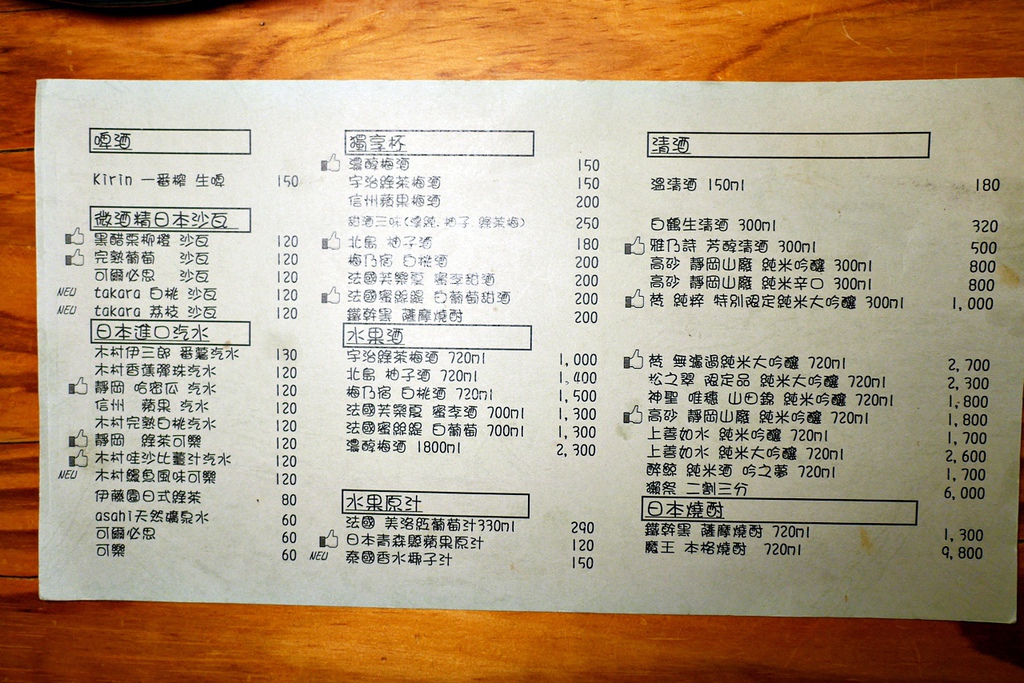 啤酒
Kirin 一番榨 生啤 150
微酒精日本沙瓦
黑醋栗柳橙 沙瓦 120
完熟葡萄 沙瓦 120
可爾必思 沙瓦 120
NEW takara 白桃 沙瓦 120
NEW takara 荔枝 沙瓦 120
日本進口汽水
木村伊三郎 番薯汽水 130
木村香蕉彈珠汽水 120
靜岡 哈密瓜 汽水 120
信州 蘋果 汽水 120
木村完熟白桃汽水 120
靜岡 綠茶可樂 120
木村哇沙比薑汁汽水 120
NEW 木村鰻魚風味可樂 120
伊藤園日式綠茶 80
asahi天然礦泉水 60
可爾必思 60
可樂 60
獨享杯
濃醇梅酒 150
宇治綠茶梅酒 150
信州蘋果梅酒 200
甜酒三味(濃醇.柚子.綠茶梅) 250
北島 柚子酒 180
梅乃宿 白桃酒 200
法國芙樂夏 蜜李甜酒 200
法國蜜絲緹 白葡萄甜酒 200
鐵幹黑 薩摩燒酎 200
水果酒
宇治綠茶梅酒 720ml 1,000
北島 柚子酒 720ml 1,400
梅乃宿 白桃酒 720ml 1,500
法國芙樂夏 蜜李酒 700ml 1,300
法國蜜絲緹 白葡萄 700ml 1,300
濃醇梅酒 1800ml 2,300
水果原汁
法國 美洛紅葡萄汁330ml 290
日本青森縣蘋果原汁 120
NEW 泰國香水椰子汁 150
清酒
溫清酒 150ml 180
白鶴生清酒 300ml 320
雅乃詩 芳醇清酒 300ml 500
高砂 靜岡山廢 純米吟釀 300ml 800
高砂 靜岡山廢 純米辛口 300ml 800
純粹 特別限定純米大吟釀 300ml 1,000
無濾過純米大吟釀 720ml 2,700
松之翠 限定品 純米大吟釀 720ml 2,300
神聖 唯穗 山田錦 純米吟釀 720ml 1,800
高砂 靜岡山廢 純米吟釀 720ml 1,800
上善如水 純米吟釀 720ml 1,700
上善如水 純米大吟釀 720ml 2,600
醉鯨 純米酒 吟之夢 720ml 1,700
獺祭 二割三分 6,000
日本燒酎
鐵幹黑 薩摩燒酎 720ml 1,300
魔王 本格燒酎 720ml 9,800